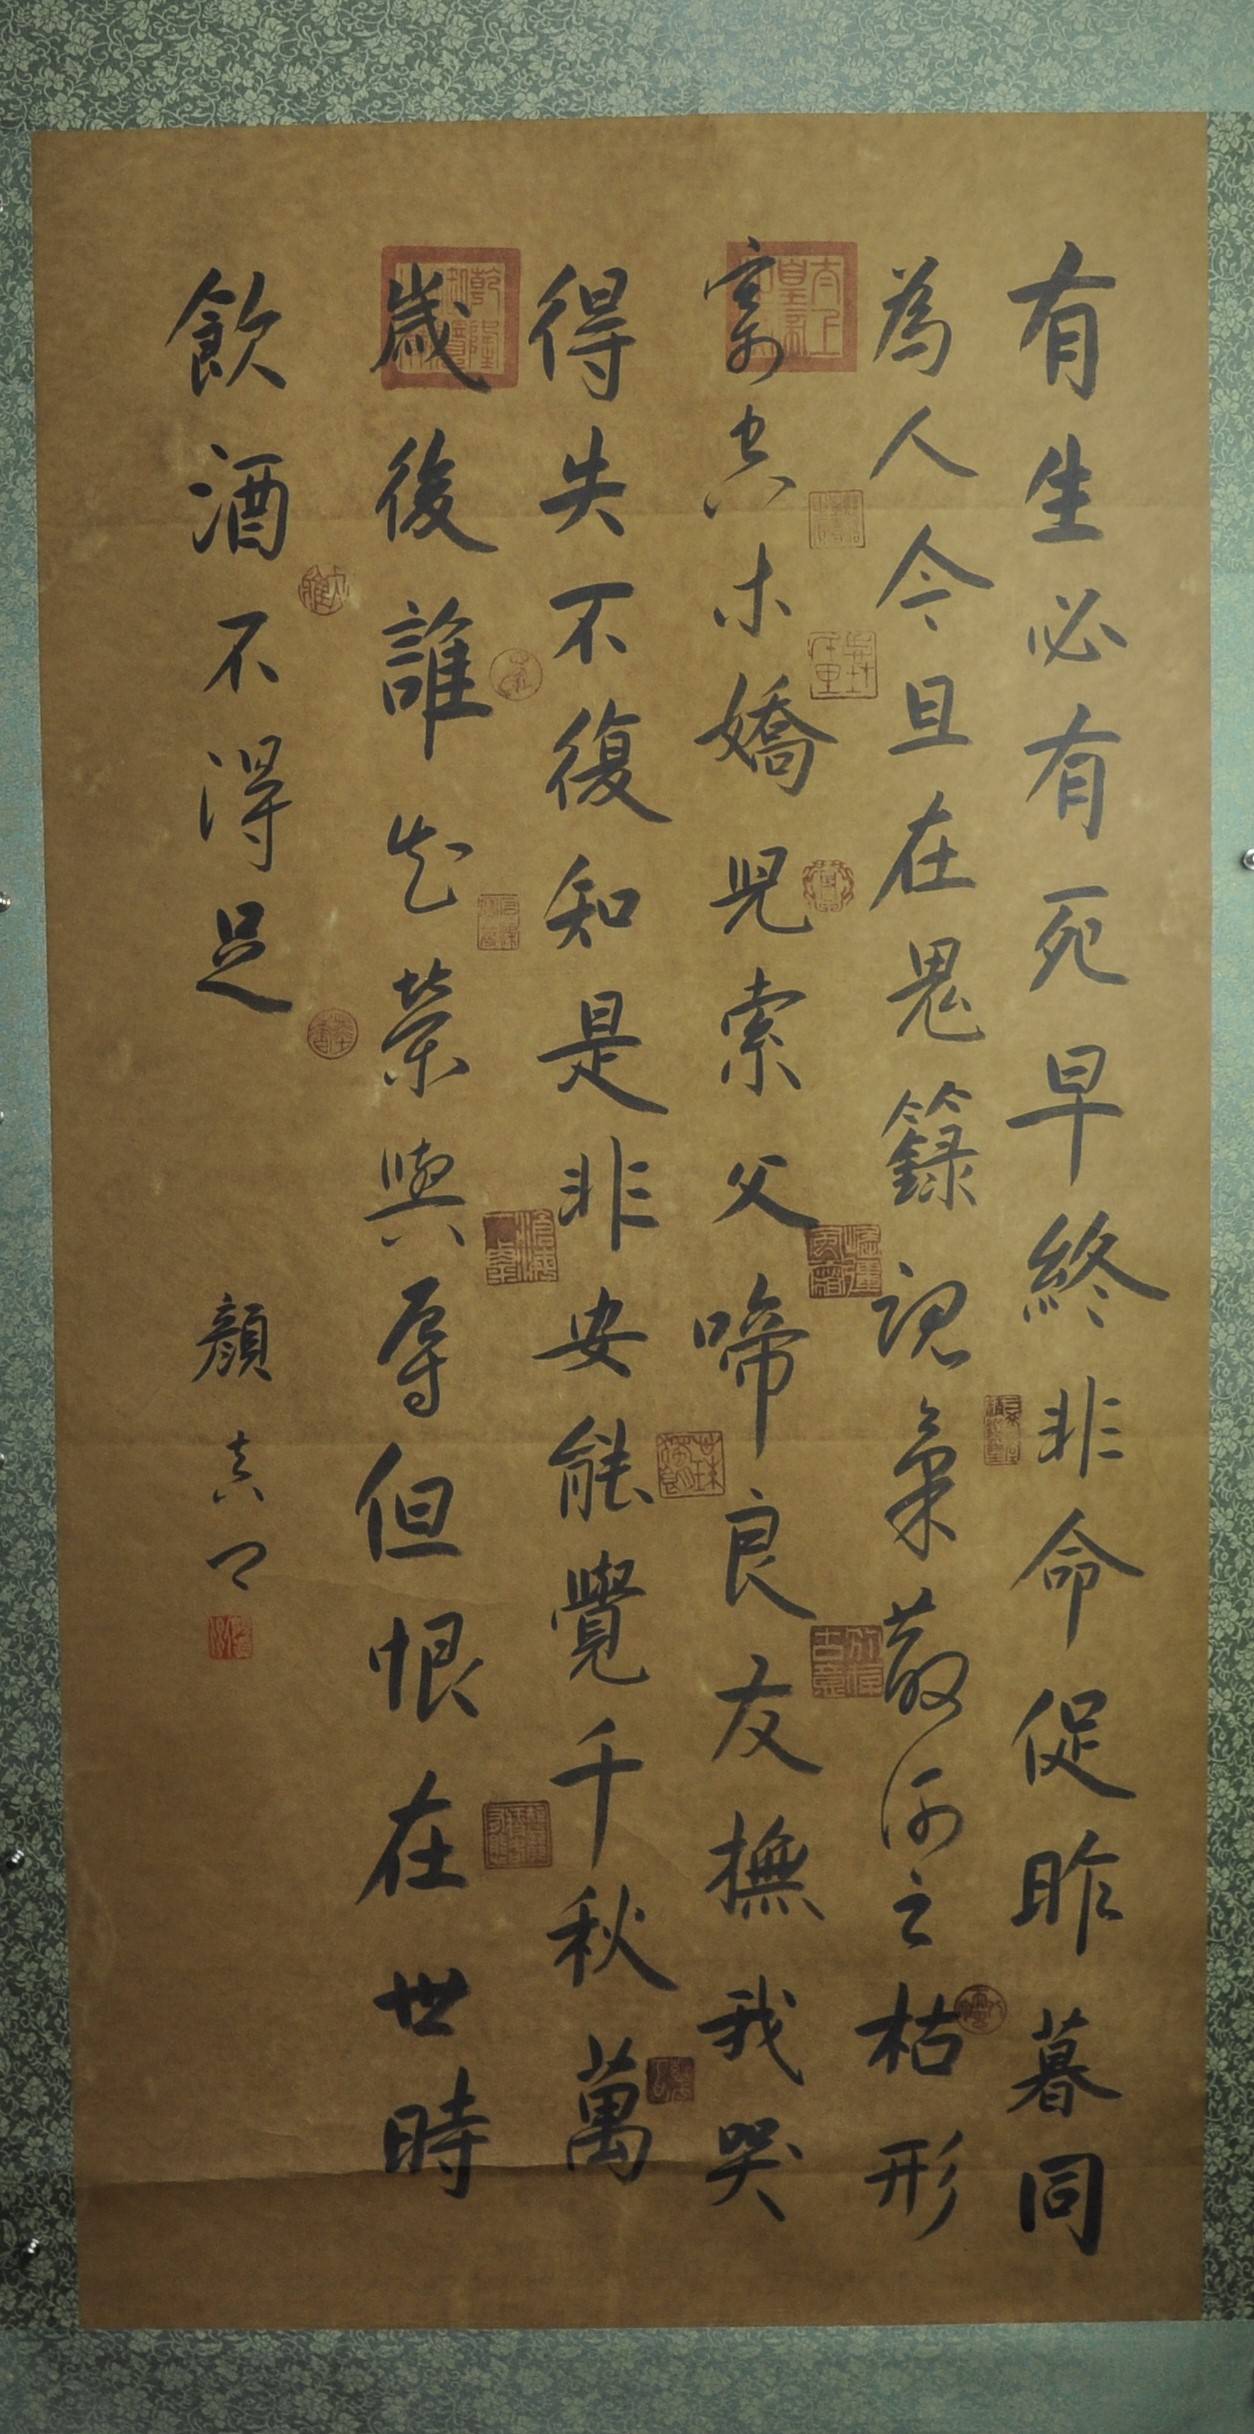 有生必有死早終非命促昨暮同
為人今旦在鬼籙魂氣散何之枯形
寄空木嬌兒索父啼良友撫我哭
得失不復知是非安能覺千秋萬
歲後誰知榮與辱但恨在世時
飲酒不得足
顏真卿